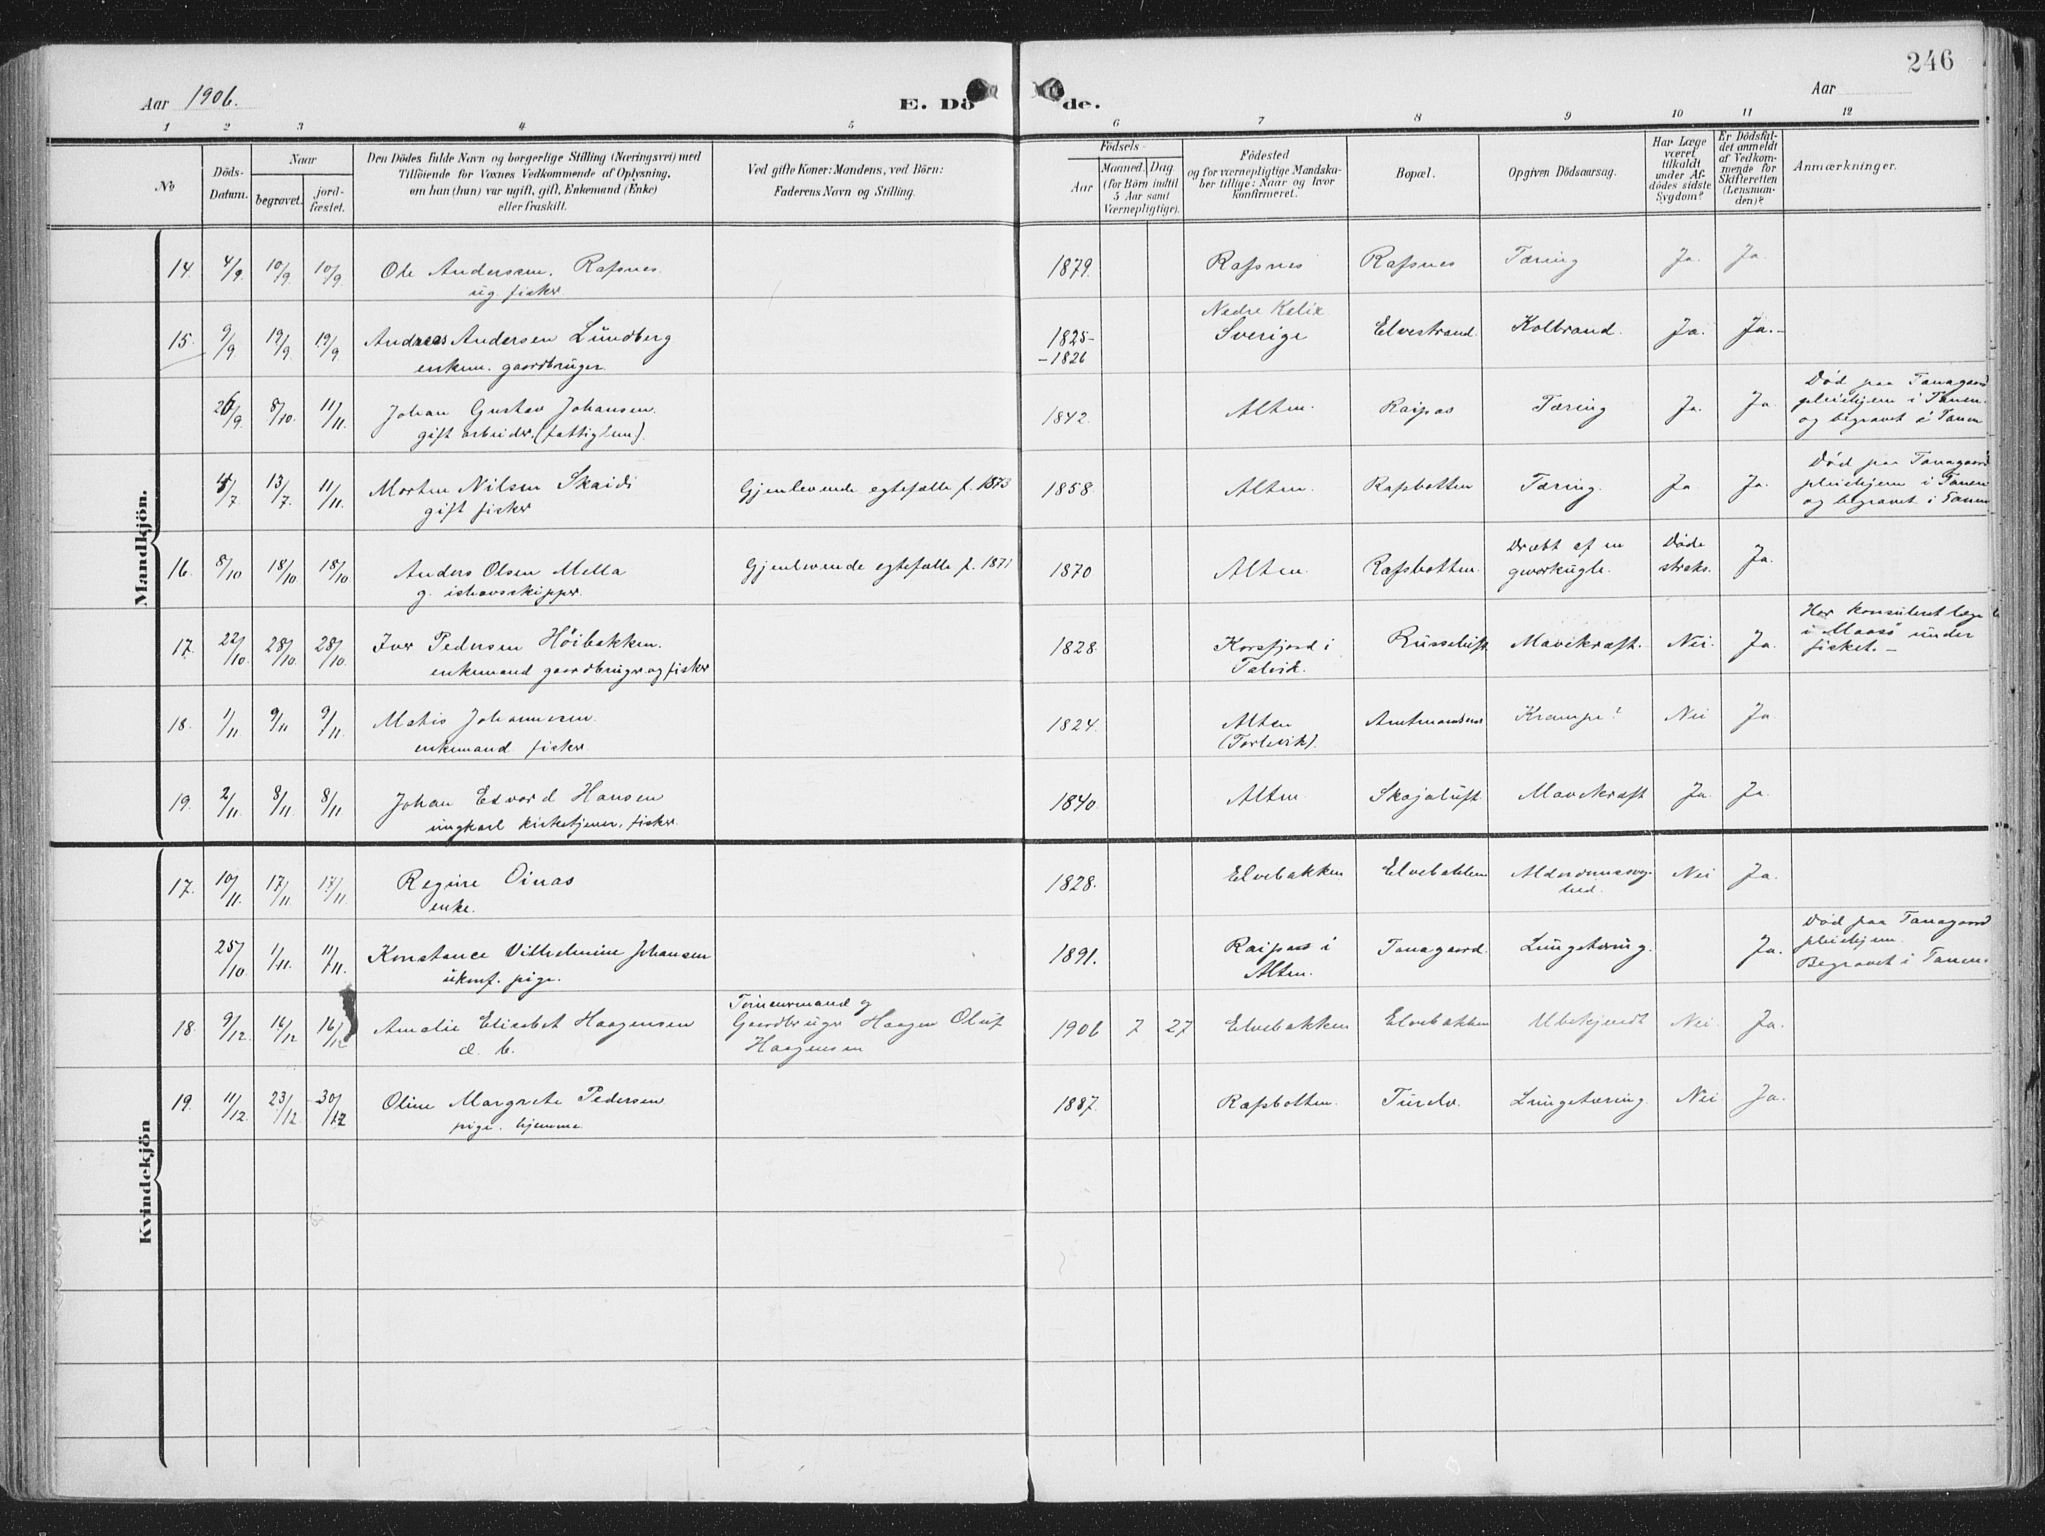 246
Aar 1906.
E. Dö de.
Aar
1 2 3 4 5 6 7 8 9 10 11 12
No
Döds-Datum.
Naar
begravet.
jord-fæstet.
Den Dödes fulde Navn og borgerlige Stilling (Næringsvei) med
Tilföiende for Voxnes Vedkommende af Oplysning,
om han (hun) var ugift, gift, Enkemand (Enke)
eller fraskilt.
Ved gifte Koner: Mandens, ved Börn:
Faderens Navn og Stilling.
Födsels-
Aar
Maaned. Dag
(for Börn indtil
5 Aar samt
Værnepligtige).
Födested
og for værnepligtige Mandska-
ber tillige: Naar og hvor
konfirmeret.
Bopæl.
Opgiven Dödsaarsag.
Har Læge
været
tilkaldt
under Af-
dödes sidste
Sygdom?
Er Dödsfal-
det anmeldt
af Vedkom-
mende for
Skifteretten
(Lensman-
den)?
Anmærkninger.
Mandkjön.
14. 4/9 10/9 10/9 Ole Andersen. Rafsnes. 1879. Rafsnes Rafsnes Tæring Ja. Ja.
ug. fisker
Nedre Kelix
15. 9/9 19/9 19/9 Andreas Andersen Lundberg 1825- Sverige Elvestrand. Kolbrand. Ja. Ja.-
enkem. gaardbruger. -1826
26/9 8/10. 11/11. Johan Gustav Johansen. 1842. Alten. Raipas Tæring Ja. Ja. Död paa Tanagaard
gift arbeider. (fattiglem). pleiehjem i Tanen.
og begravet i Tanen
5/7 13/7. 11/11. Morten Nilsen Skaidi Gjenlevende egtefælle f. 1873 1858. Alten. Rafsbotten Tæring. Ja Ja. Död paa Tanagaard
gift fisker pleiehjem i Tanen
og begravet i Tanen
16. 8/10 18/10 18/10 Anders Olsen Mella Gjenlevende egtefælle f. 1871 1870 Alten. Rafsbotten. Dræbt af en Døde Ja.
g. ishavsskipper. straks.
17. 22/10 28/10 28/10. Iver Pedersen Höibakken. 1828. Korsfjord i Russeluft. Mavekræft. Nei. Ja. Har konsuleret læge
enkemand gaardbruger og fisker Talvik. i Maasø under
fisket.-
18. 1/11 9/11 9/11. Matis Johannesen. 1824. Alten Krampe! Nei Ja
enkemand fisker.
19. 2/11. 8/11. 8/11. Johan Edvard Hansen 1840. Alten Skajaluft. Mavekræft Ja. Ja.
ungkarl kirketjener, fisker.
Kvindekjön
17. 10/11. 17/11. 17/11 Regine Oinas 1828. Elvebakken Elvebakken Alderdomssvag- Nei Ja.
enke. hed.
25/10 1/11. 11/11. Konstance Vilhelmine Johansen 1891. Raipas i Tanagaard. Lungetæring. Ja. Död paa Tanagaard
ukonf. pige. Alten. pleiehjem.
Begravet i Tanen.
18. 9/12. 16/12 16/12 Amalie Elisabet Haagensen Gaardbruger Haagen Oluf 1906 7 27 Elvebakken Elvebakken Ubekjendt Nei. Ja.
Haagensen
19. 11/12. 23/12 30/12 Oline Margrete Pedersen 1887. Rafsbotten. Turelv. Lungetæring. Nei Ja.
pige. hjemme